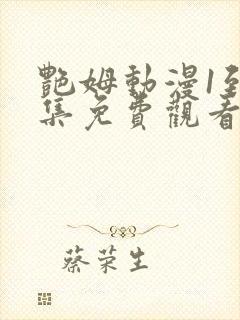 艷姆動漫1至
集免費觀看
蔡荣生